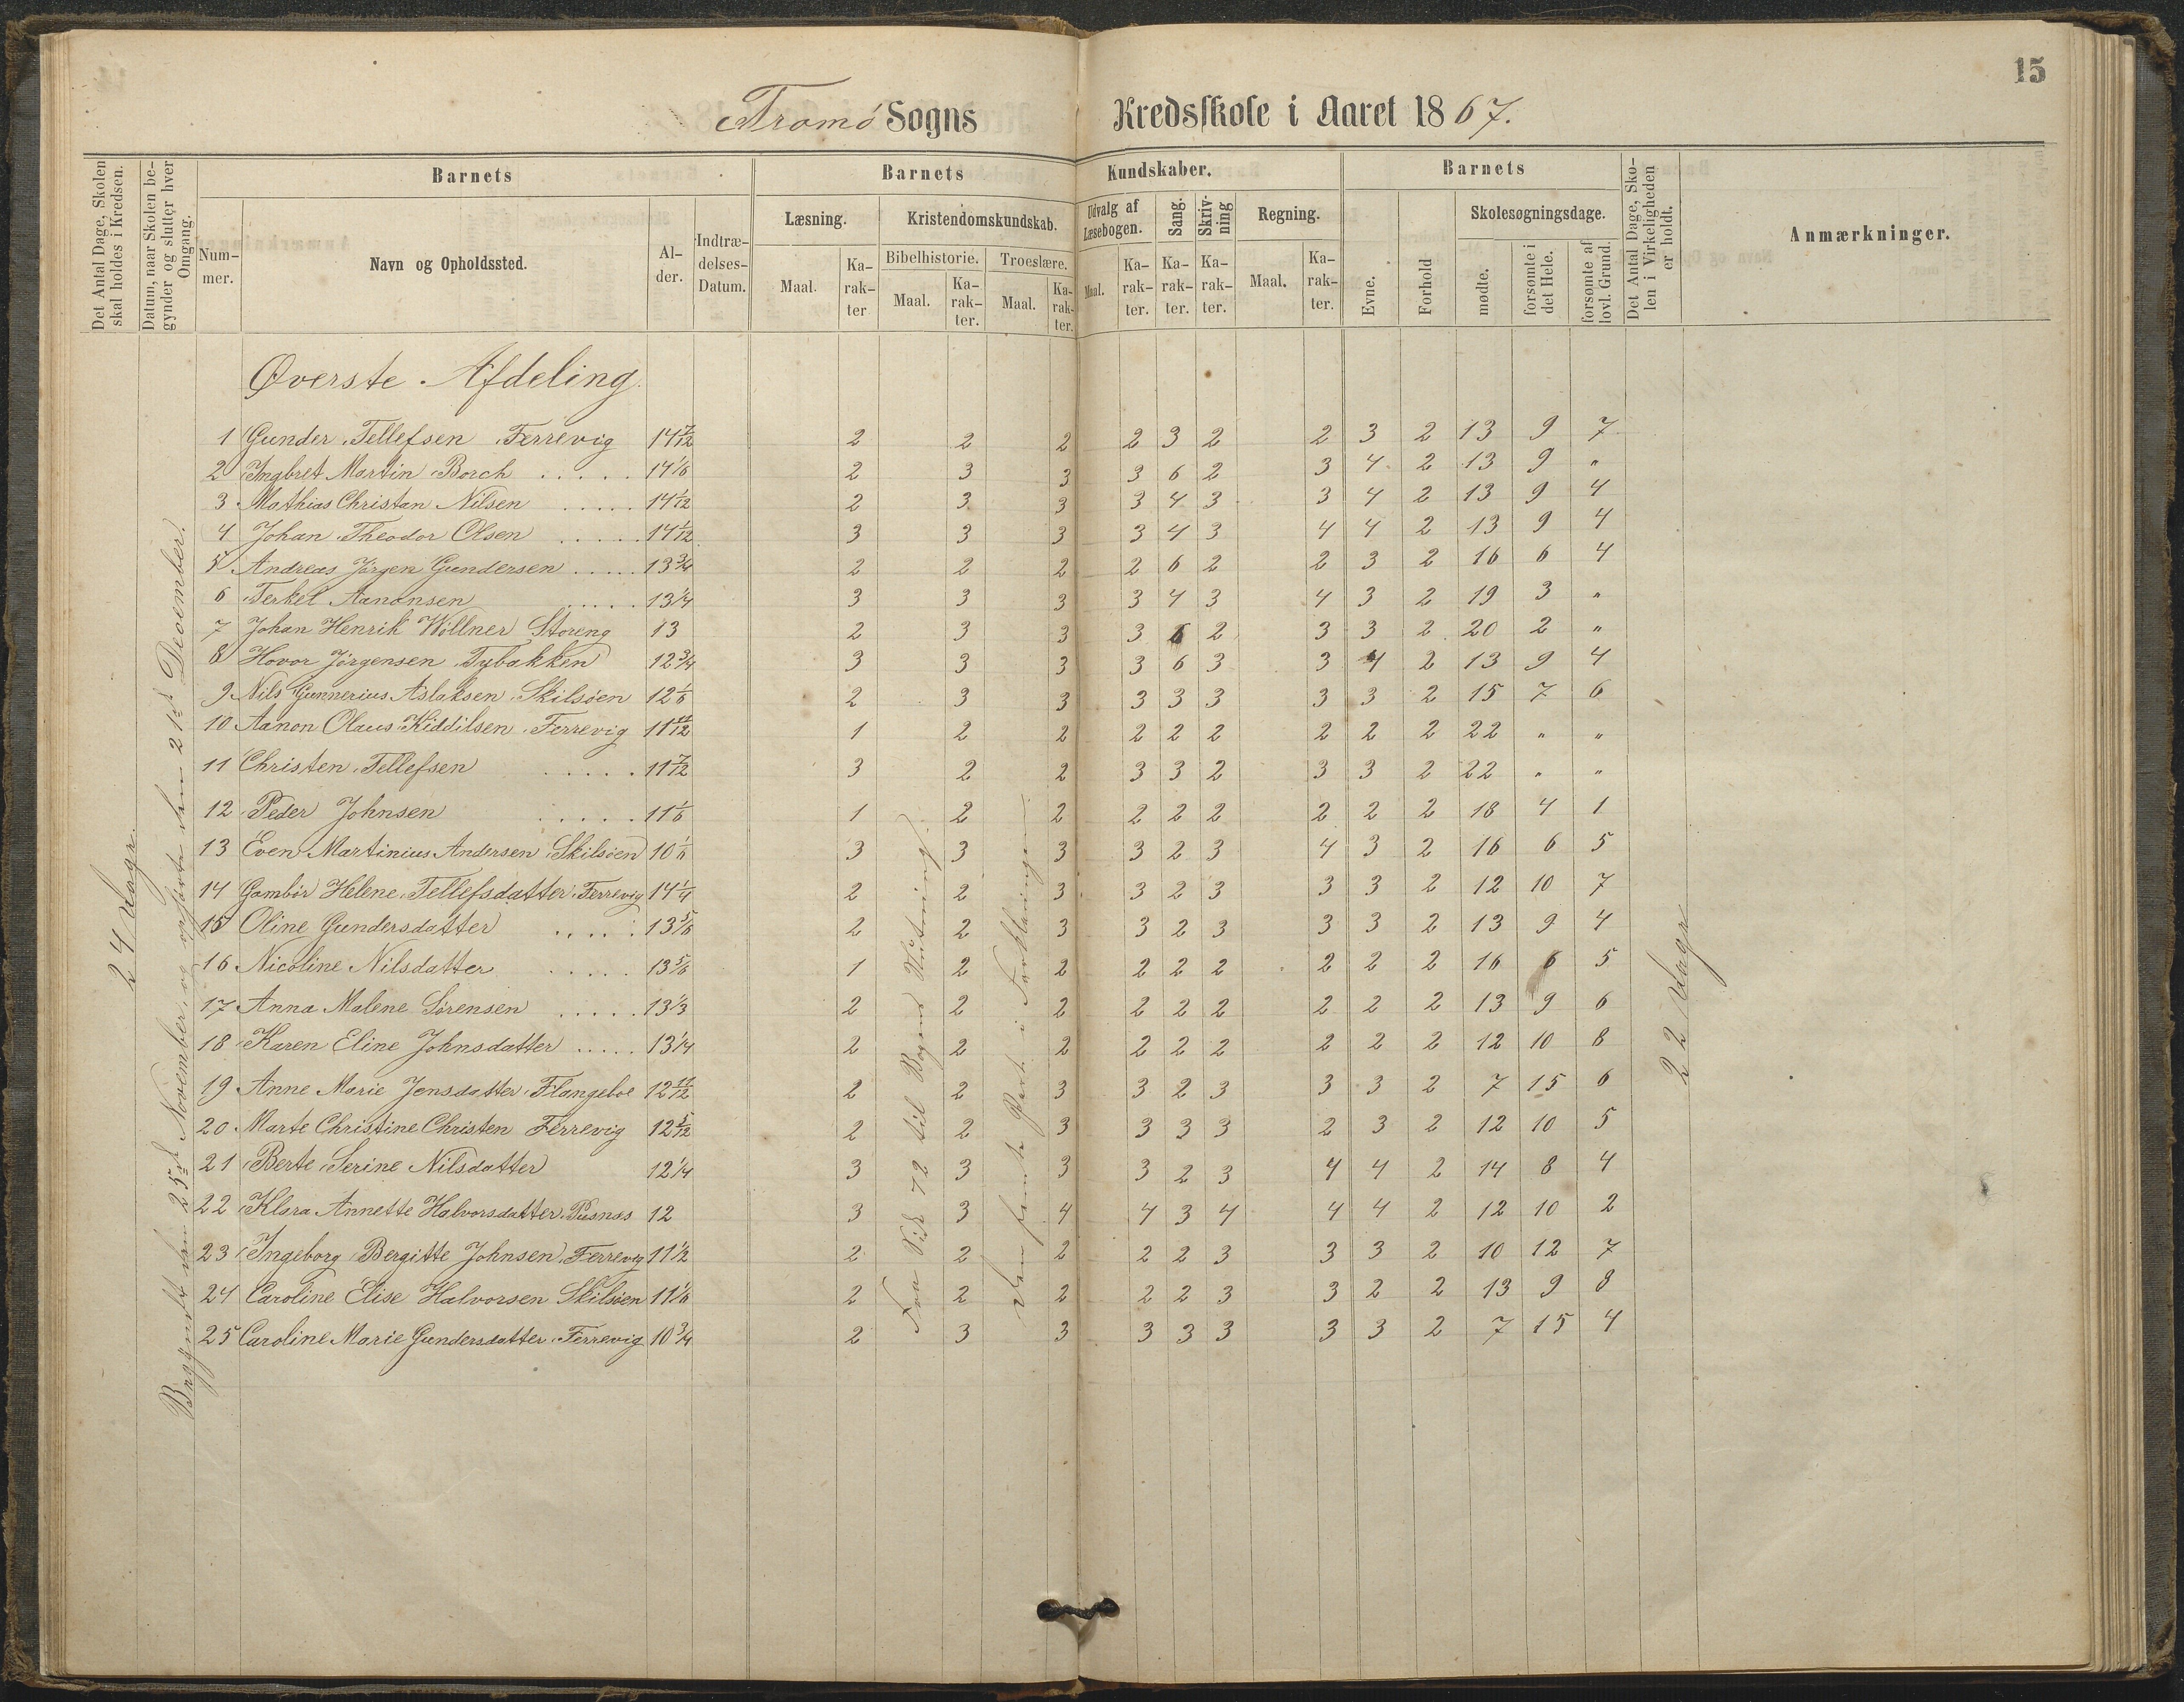 15
Tromø Sogns Kredsskole i Aaret 1867.
Det Antal Dage, Skolen skal holdes i Kredsen.
Datum, naar Skolen begynder og slutter hver Omgang.
Barnets
Barnets Kundskaber.
Barnets
Det Antal Dage, Skolen i Virkeligheden er holdt.
Anmærkninger.
Nummer.
Navn og Opholdssted.
Alder.
Indtrædelses-Datum.
Læsning.
Kristendomskundskab.
Udvalg af Læsebogen.
Sang.
Skrivning
Regning.
Evne.
Forhold
Skolesøgningsdage.
Bibelhistorie.
Troeslære.
Maal.
Karakter
Maal.
Karakter.
Maal.
Karakter.
Maal.
Karakter.
Karakter.
Karakter.
Maal.
Karakter.
mødte.
forsømte i det Hele.
forsømte af lovl. Grund.
Øverste Afdeling.
1 Gunder Tellefsen Færrevig 14 7/12 2 2 2 2 3 2 2 3 2 13 9 7
2 Ingbret Martin Borch ..... 14 1/6 2 3 3 3 6 2 3 4 2 13 9 "
3 Mathias Christan Nilsen ..... 14 1/12 2 3 3 3 4 3 3 4 2 13 9 4
4 Johan Theodor Olsen ..... 14 1/12 3 3 3 3 4 3 4 4 2 13 9 4
5 Andreas Jörgen Gundersen ..... 13 3/4 2 2 2 2 6 2 2 3 2 16 6 4
6 Terkel Aanonsen ..... 13 1/4 3 3 3 3 4 3 4 3 2 19 3 "
7 Johan Henrik Wöllner Storeng 13 2 3 3 3 6 2 3 3 2 20 2 "
8 Hovor Jörgensen Tybakken 12 3/4 3 3 3 3 6 3 3 4 2 13 9 4
9 Nils Gunnerius Aslaksen Skilsöen 12 1/6 2 3 3 3 3 3 3 3 2 15 7 6
10 Aanon Olaus Kiddilsen Færrevig 11 11/12 1 2 2 2 2 2 2 2 2 22 " "
11 Christen Tellefsen ..... 11 7/12 3 2 2 3 3 2 3 3 2 22 " "
12 Peder Johnsen ..... 11 1/6 1 2 2 2 2 2 2 2 2 18 4 1
13 Even Martinius Andersen Skilsöen 10 1/6 3 3 3 3 2 3 4 3 2 16 6 5
14 Gambör Helene Tellefsdatter Færrevig 14 1/4 2 2 3 3 2 3 3 3 2 12 10 7
15 Oline Gundersdatter ..... 13 5/6 2 2 3 3 2 3 3 3 2 13 9 4
16 Nicoline Nilsdatter ..... 13 5/6 1 2 2 2 2 2 2 2 2 16 6 5
17 Anna Malene Sörensen ..... 13 1/3 2 2 2 2 2 2 2 2 2 13 9 6
18 Karen Eline Johnsdatter ..... 13 1/4 2 2 2 2 2 2 2 2 2 12 10 8
19 Anne Marie Jensdatter Flangeboe 12 11/12 2 2 3 3 2 3 3 3 2 7 15 6
20 Marte Christine Christen Færrevig 12 5/12 2 2 3 3 3 3 2 3 2 12 10 5
21 Berte Serine Nilsdatter 12 1/4 3 3 3 3 2 3 4 4 2 14 8 4
22 Klara Annette Halvorsdatter Pusnæs 12 3 3 4 4 3 4 4 4 2 12 10 2
23 Ingeborg Bergitte Johnsen Færrevig 11 1/2 2 2 2 2 2 3 3 3 2 10 12 7
24 Caroline Elise Halvorsen Skilsöen 11 1/6 2 2 2 2 2 3 3 2 2 13 9 8
25 Caroline Marie Gundersdatter Færrevig 10 3/4 2 3 3 3 3 3 3 3 2 7 15 4
24 Dage.
Begyndt den 25de November, og den 21de December.
Fra Side 72 til Bogens Slutning.
Den femte Part i Forklaringen.
22 Dage